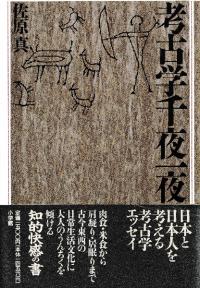 考古学千夜一夜
佐原 真
日本と
日本人を
考える
考古学
エッセイ
肉食・米食から
肩凝り・居眠りまで
古今東西の
日常生活文化に
大人のうんちくを
傾ける
知的快感の書
小学館